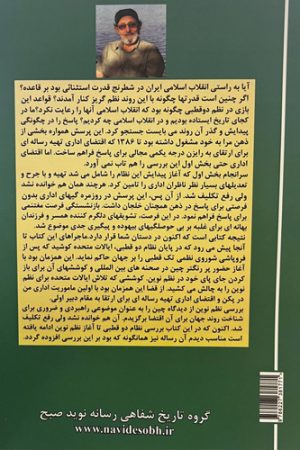 آیا به راستی انقلاب اسلامی ایران در شطرنج قدرت استثنائی بود بر قاعده؟
اگر چنین است قدرتها چگونه با این روند نظم گریز کنار آمدند؟ قواعد این
بازی در نظم دوقطبی چگونه بود که انقلاب اسلامی آنها را رعایت نکرد؟ما در
کجای تاریخ ایستاده بودیم و در انقلاب اسلامی چه کردیم؟ پاسخ را در چگونگی
پیدایش و گذر آن روند می بایست جستجو کرد. این پرسش همواره بخشی از
ذهن مرا به خود مشغول داشته بود تا ۱۳۸۶ که اقتضای اداری تهیه رساله ای
برای ارتقای به رایزن درجه یکمی مجالی برای پاسخ فراهم ساخت. اما اقتضای
اداری حتی بخش اول این بررسی را هم تاب نمی آورد.
سرانجام بخش اول که آغاز پیدایش این نظام را شامل می شد تهیه و با جرح و
تعدیلهای بسیار نظر ناظران اداری را تامین کرد. هرچند همان هم خوانده نشد
ولی رفع تکلیف شد. از آن پس، این پرسش در روزمره گیهای اداری بدون
فرصتی برای پاسخ در ذهن همچنان خلجان داشت. بازنشستگی فرصت مغتنمی
برای پاسخ فراهم نمود. در این فرصت، تشویقهای دلگرم کننده همسر و فرزندان
بهانه ای برای غلبه بر بی حوصلگیهای بیهوده و پیگیری جدی موضوع شد.
نتیجه کتابی است که اکنون در دستان شما قرار دارد.ماجراهای این کتاب تا
آنجا پیش می رود که در پایان نظام دو قطبی، ایالات متحده کوشید که پس از
فروپاشی شوروی نظمی تک قطبی را بر جهان حاکم نماید. این همزمان بود با
آغاز حضور پر رنگتر چین در صحنه های بین المللی و کوششهای آن برای باز
کردن جای پای خود در نظم نوین. کوششی که تلاش ایالات متحده برای نظم
نوین را به چالش می کشید. از قضا این همزمان بود با اولین ماموریت اداری من
در پکن و اقتضای اداری تهیه رساله ای برای ارتقا به مقام دبیر اولی.
بررسی نظم نوین از دیدگاه چین را به عنوان موضوعی راهبردی و ضروری برای
شناخت روند جهان برای آن اقتضا برگزیدم. آن هم خوانده نشد ولی رفع تکلیف
شد. اکنون که در این کتاب بررسی نظام دو قطبی تا آغاز نظم نوین ادامه یافته
است مناسب دیدم آن رساله نیز همانگونه که بود بر این بررسی افزوده گردد.
گروه تاریخ شفاهی رسانه نوید صبح
www.navidesobh.ir